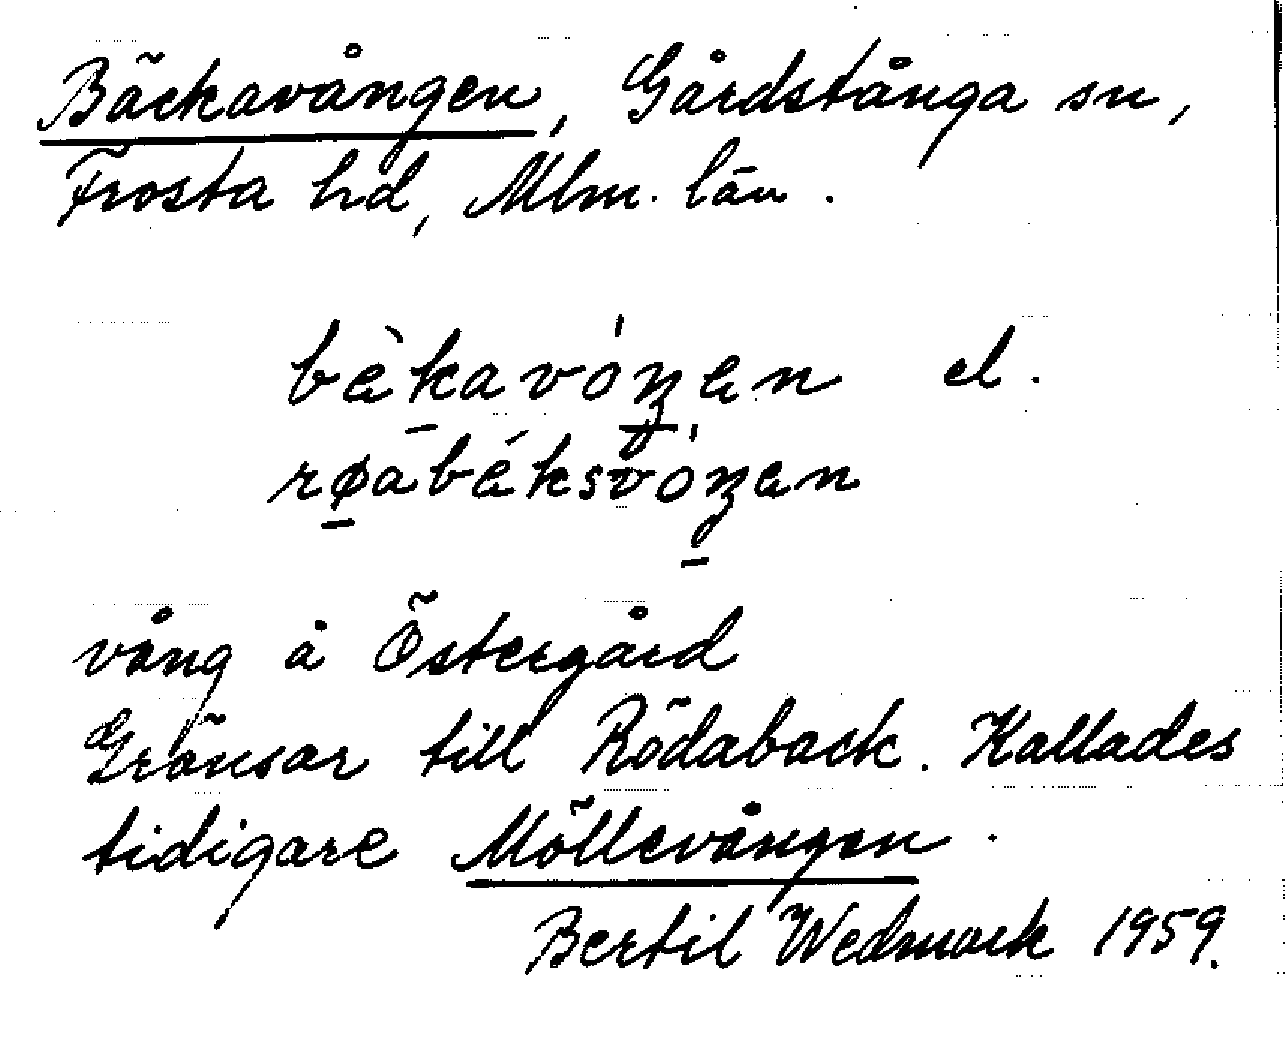 Bäckavången, Gårdstånga sn,
Frosta hd, Mlm. län.
bèkavóŋen el.
røabéksvóŋen
vång å Östergård
Gränsar till Rödaback. Kallades
tidigare Möllevången.
Bertil Wedmark 1959.